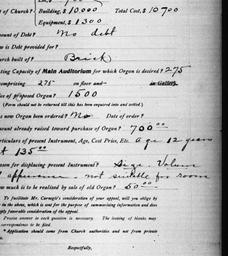 of Church? Building, 10,000 Total Cost, $10700
Equipment, $1300
mount of Debt? No debt
is Debt provided for?
urch built of? Brick
ating Capacity of Main Auditorium for which Organ is desired? 275
comprising 275 on floor and in Gallery.
ice of proposed Organ? 1500
(Form should not be returned till this has been enquired into and settled.)
new Organ been ordered? No Date of order?
ount already raised toward purchase of Organ? 700.00
articulars of present Instrument, Age, Cost Price, Etc. age 12 years
t 135.00
ason for displacing present Instrument? Size. Volume
appearance - not suitable for room
much is to be realized by sale of old Organ? 50.00
To facilitate Mr. Carnegie's consideration of your appeal, will you oblige by
in the above, which is sent for the purpose of summarizing information and does
ply favorable consideration of the appeal.
Precise answer to each question is necessary. The leaving of blanks may
correspondence to be filed.
* Application should come from Church authorities and not from private
Respectfully,